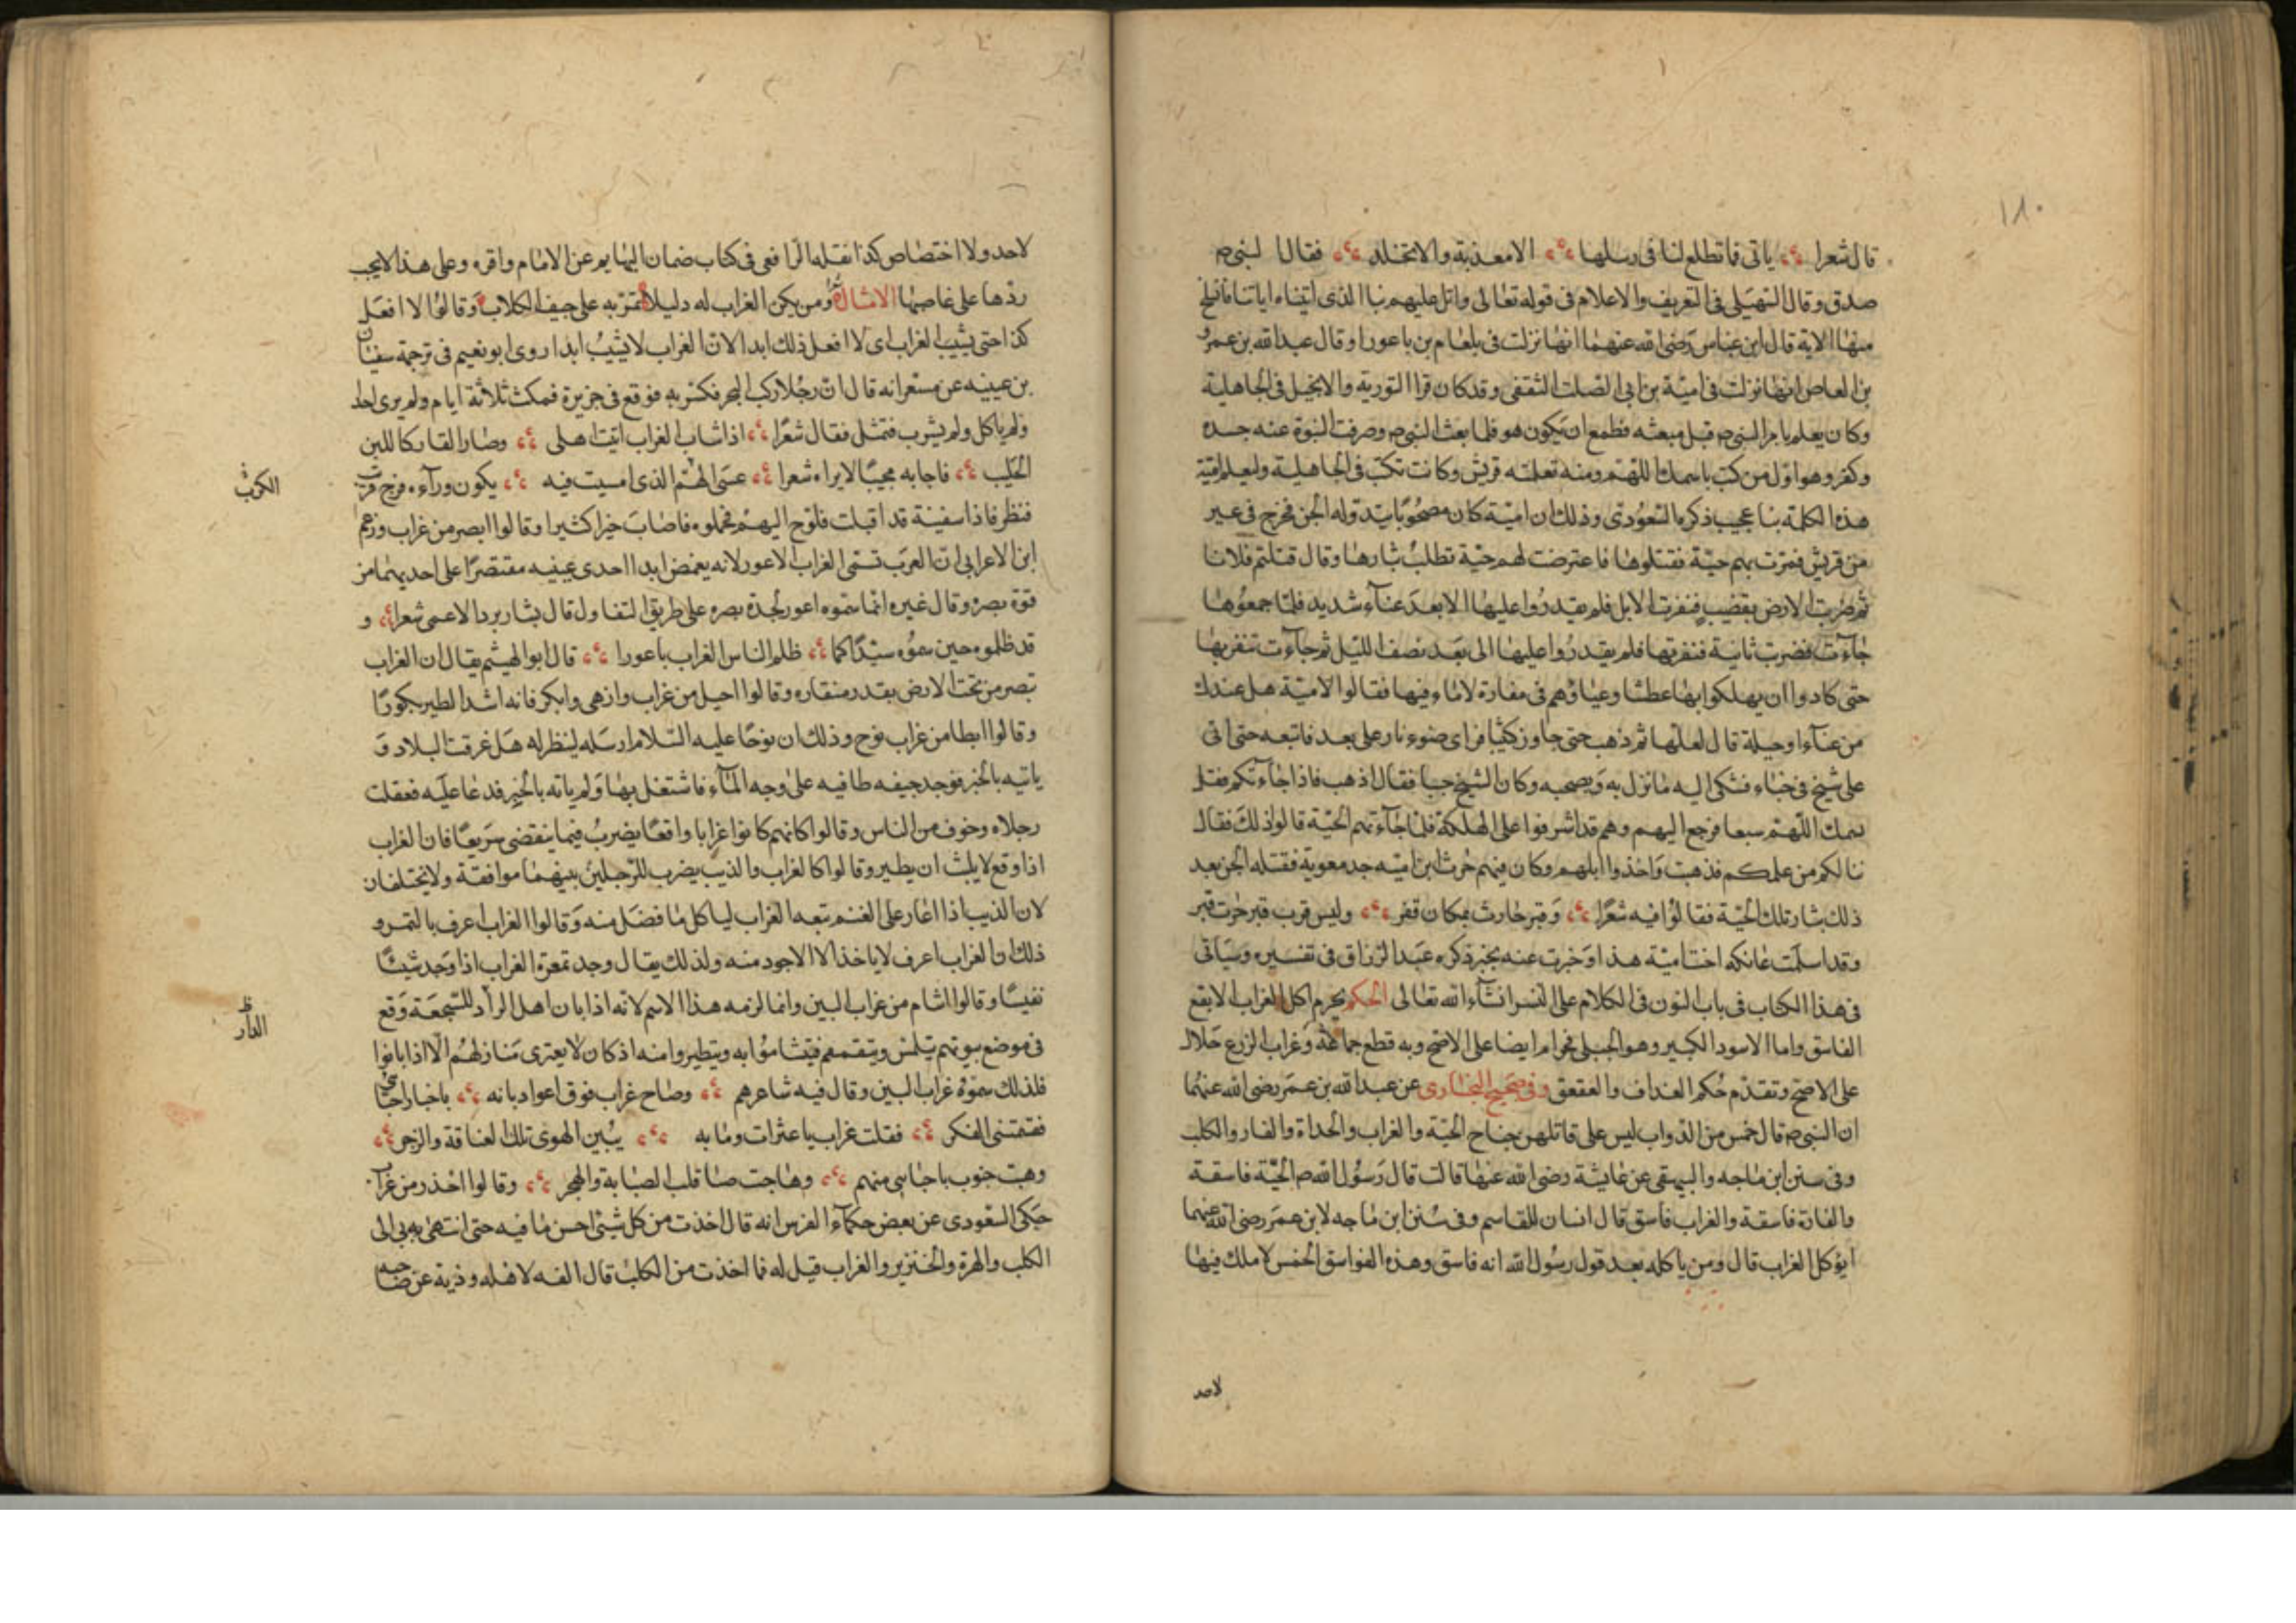 ١٨٠
قال شعرا ياتى فاتطلع لنا فى رسلها الا معذبة والا تجلد فقال النبى ص
صدق وقال السهيلى فى التعريف والاعلام فى قوله تعالى واتل عليهم نبا الذى اتيناه اياتنا فانسلخ
منها الاية قال ابن عباس رضى الله عنهما انها نزلت فى بلعام بن باعورا وقال عبد الله بن عمرو
بن العاص انها نزلت فى امية بن ابى الصلت الثقفى وقد كان قرا التورية والانجيل فى الجاهلية
وكان يعلم بامر النبى ص قبل مبعثه فطمع ان يكون هو فلما بعث النبى ص وصرفت النبوة عنه حسده
وكفر وهو اول من كتب باسمك اللهم ومنه تعلمته قريش وكانت تكتب فى الجاهلية ولتعلم امية
هذه الكلمة بنا عجيب ذكره المسعودى وذلك ان امية كان مصحوبا تبدو له الجن فخرج فى عير
من قريش فمرت بهم حية فقتلوها فاعترضت لهم حية تطلب بثارها وقال قتلتم فلانا
ثم ضربت الارض بقضيب فنفرت الابل فلم يقدروا عليها الا بعد عناء شديد فلما جمعوها
جاءت فضربت ثانية فنفرتها فلم يقدروا عليها الى بعد نصف الليل ثم جاءت تنفربها
حتى كادوا ان يهلكوا بها عطشا وعياؤهم فى مفازة لا ماء فيها فقالوا لامية هل عندك
من عناء او حيلة قال لعلها ثم ذهب حتى جاوز كثيبا فراى ضوء نار على بعد فاتبعه حتى اتى
على شيخ فى خباء فشكى اليه ما نزل به وبصحبه وكان الشيخ جنيا فقال اذهب فاذا جاءتكم فقل
بسمك اللهم سبعا فرجع اليهم وهم قد اشرفوا على الهلكة فلما جاءتهم الحية قالوا ذلك فقال
تبا لكم من علمكم فذهبت واخذوا ابلهم وكان فيهم حرب ابن امية جد معوية فقتله الجن بعد
ذلك بثار تلك الحية فقالوا فيه شعرا وقبر حارث بمكان قفر وليس قرب قبر حرب قبر
وقد اسلمت عاتكه اخت امية هذا وخبرت عنه بخبر ذكره عبد الرزاق فى تفسيره وسياتى
فى هذا الكتاب فى باب النون فى الكلام على النسر انشاء الله تعالى الحكم يحرم اكل الغراب الابقع
الفاسق واما الاسود الكبير وهو الجبلى فحرام ايضا على الاصح وبه قطع جماعة وغراب الزرع حلال
على الاصح وتقدم حكم الغداف والعقعق وفى صحيح البخارى عن عبد الله بن عمر رضى الله عنهما
ان النبى ص قال خمس من الدواب ليس على قاتلهن جناح الحية والغراب والحداة والفار والكلب
وفى سنن ابن ماجه والبيهقى عن عايشة رضى الله عنها قالت قال رسول الله ص الحية فاسقة
والفارة فاسقة والغراب فاسق قال انسان للقاسم وفى سنن ابن ماجه لابن عمر رضى الله عنهما
ايؤكل الغراب قال ومن ياكله بعد قول رسول الله انه فاسق وهذه الفواسق الخمس لا ملك فيها
لاحد
لاحد ولا اختصاص كذا نقله الرافعى فى كتاب ضمان البهايم عن الامام واقره وعلى هذا لا يجب
ردها على غاصبها الامثال ومن يكن الغراب له دليلا تمر به على جيف الكلاب وقالوا لا افعل
كذا حتى يشيب الغراب اى لا افعل ذلك ابدا لان الغراب لا يشيب ابدا روى ابو نعيم فى ترجمة سفيان
بن عيينه عن مسعر انه قال ان رجلا ركب البحر فكسر به فوقع فى جزيرة فمكث ثلاثة ايام ولم يرى احدا
ولم ياكل ولم يشرب فتمثل فقال شعرا اذا شاب الغراب اتيت اهلى وصار القار كاللبن
الحليب فاجابه مجيبا لا يراه شعرا عسى الهم الذى امسيت فيه يكون وراءه فرج قريب
الكرب
فنظر فاذا سفينة قد اقبلت فلوح اليهم فحملوه فاصاب خيرا كثيرا وقالوا ابصر من غراب وزعم
ابن الاعرابى ان العرب تسمى الغراب الاعور لانه يغمض ابدا احدى عينيه مقتصرا على احديهما من
قوة بصره وقال غيره انما سموه اعور لحدة بصره على طريق التفاول قال بشار برد الاعمى شعرا و
قد ظلموه حين سموه سيدا كما ظلم الناس الغراب باعورا قال ابو الهيثم يقال ان الغراب
تبصر من تحت الارض بقدر منقاره وقالوا احيل من غراب وازهى وابكر فانه اشد الطير بكورا
وقالوا ابطا من غراب نوح وذلك ان نوحا عليه السلام ارسله لينظر له هل غرقت البلاد و
ياتيه بالخبر فوجد جيفه طافيه على وجه الماء فاشتغل بها ولم ياته بالخبر فدعا عليه فعقلت
رجلاه وخوف من الناس وقالوا كانهم كانوا غرابا واقعا يضرب فيما ينقضى سريعا فان الغراب
اذا وقع لا يلبث ان يطير وقالوا كالغراب والذيب يضرب للرجلين بينهما موافقة ولا يختلفان
لان الذيب اذا اغار على الغنم تبعه الغراب لياكل ما فضل منه وقالوا الغراب اعرف بالتمرو
ذلك ان الغراب اعرف لا ياخذ الا الاجود منه ولذلك يقال وجد تمرة الغراب اذا وجد شيئا
نفيسا وقالوا اشام من غراب البين وانما لزمه هذا الاسم لانه اذا بان اهل الدار للنجعة وقع
ظ الدار
فى موضع بيوتهم يتلمس ويتقمم فيتشاموا به ويتطيروا منه اذ كان لا يعترى منازلهم الا اذا بانوا
فلذلك سموه غراب البين وقال فيه شاعرهم وصاح غراب فوق اعواد بانه باخبار احبابى
فقسمتنى الفكر فقلت غراب باعثرات وما به يبين الهوى تلك العناقة والزجر
وهبت جنوب باجتنابى منهم وهاجت صبا قلب الصبابة والهجر وقالوا احذر من غراب
حكى المسعودى عن بعض حكماء الفرس انه قال اخذت من كل شئ احسن ما فيه حتى انتهى به بى الى
الكلب والهرة والخنزير والغراب قيل له فما اخذت من الكلب قال الفه لاهله وذبه عن صاحبه